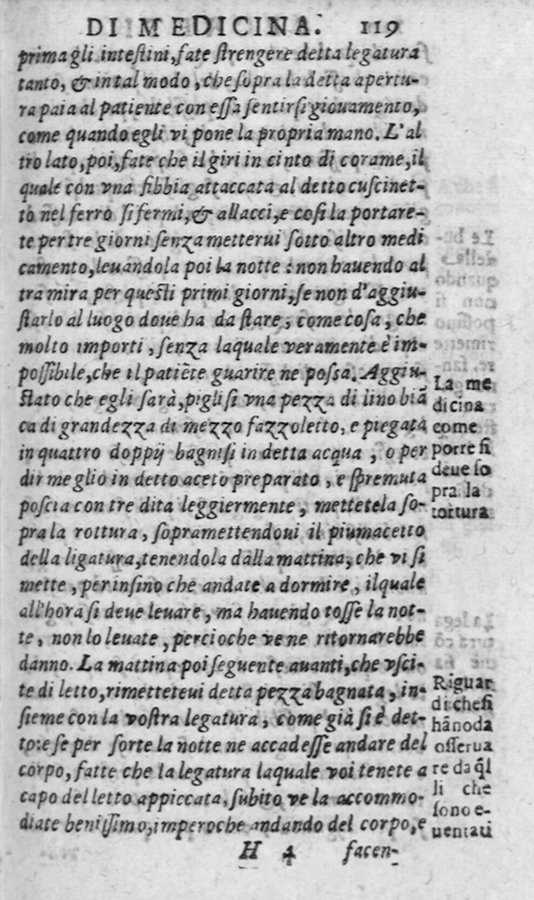 DI MEDICINA. 119
prima gli intestini, fate strengere detta legatura
tanto, & in tal modo, che sopra la detta apertu-
ra paia al patiente con essa sentirsi giouamento,
come quando egli vi pone la propria mano. L'al
tro lato, poi, fate che il giri in cinto di corame, il
quale con vna fibbia attaccata al detto cuscinet-
to nel ferro si fermi, & allacci, e così la portare-
te per tre giorni senza metterui sotto altro medi
camento, leuandola poi la notte: non hauendo al
tra mira per questi primi giorni, se non d'aggiu-
starlo al luogo doue ha da stare, come cosa, che
molto importi, senza laquale veramente è im-
possibile, che il patiẽte guarire ne possa. Aggiu-
stato che egli sarà, piglisi vna pezza di lino biã
ca di grandezza di mezzo fazzoletto, e piegata
in quattro doppij bagnisi in detta acqua, o per
dir meglio in detto aceto preparato, e spremuta
poscia con tre dita leggiermente, mettetela so-
pra la rottura, sopramettendoui il piumacetto
della ligatura, tenendola dalla mattina, che vi si
mette, per insino che andate a dormire, ilquale
all'hora si deue leuare, ma hauendo tosse la not-
te, non lo leuate, percioche ve ne ritornarebbe
danno. La mattina poi seguente auanti, che vsci-
te di letto, rimetteteui detta pezza bagnata, in-
sieme con la vostra legatura, come già si è det-
to: e se per sorte la notte ne accadesse andare del
corpo, fatte che la legatura laquale voi tenete a
capo del letto appiccata, subito ve la accommo-
diate benissimo, imperoche andando del corpo, e
H 4 facen-
La me
dicina
come
porre si
deue so
pra la
tortura
Riguar
di chesi
hãno da
osserua
re da q̃l
li che
sono e-
uentati